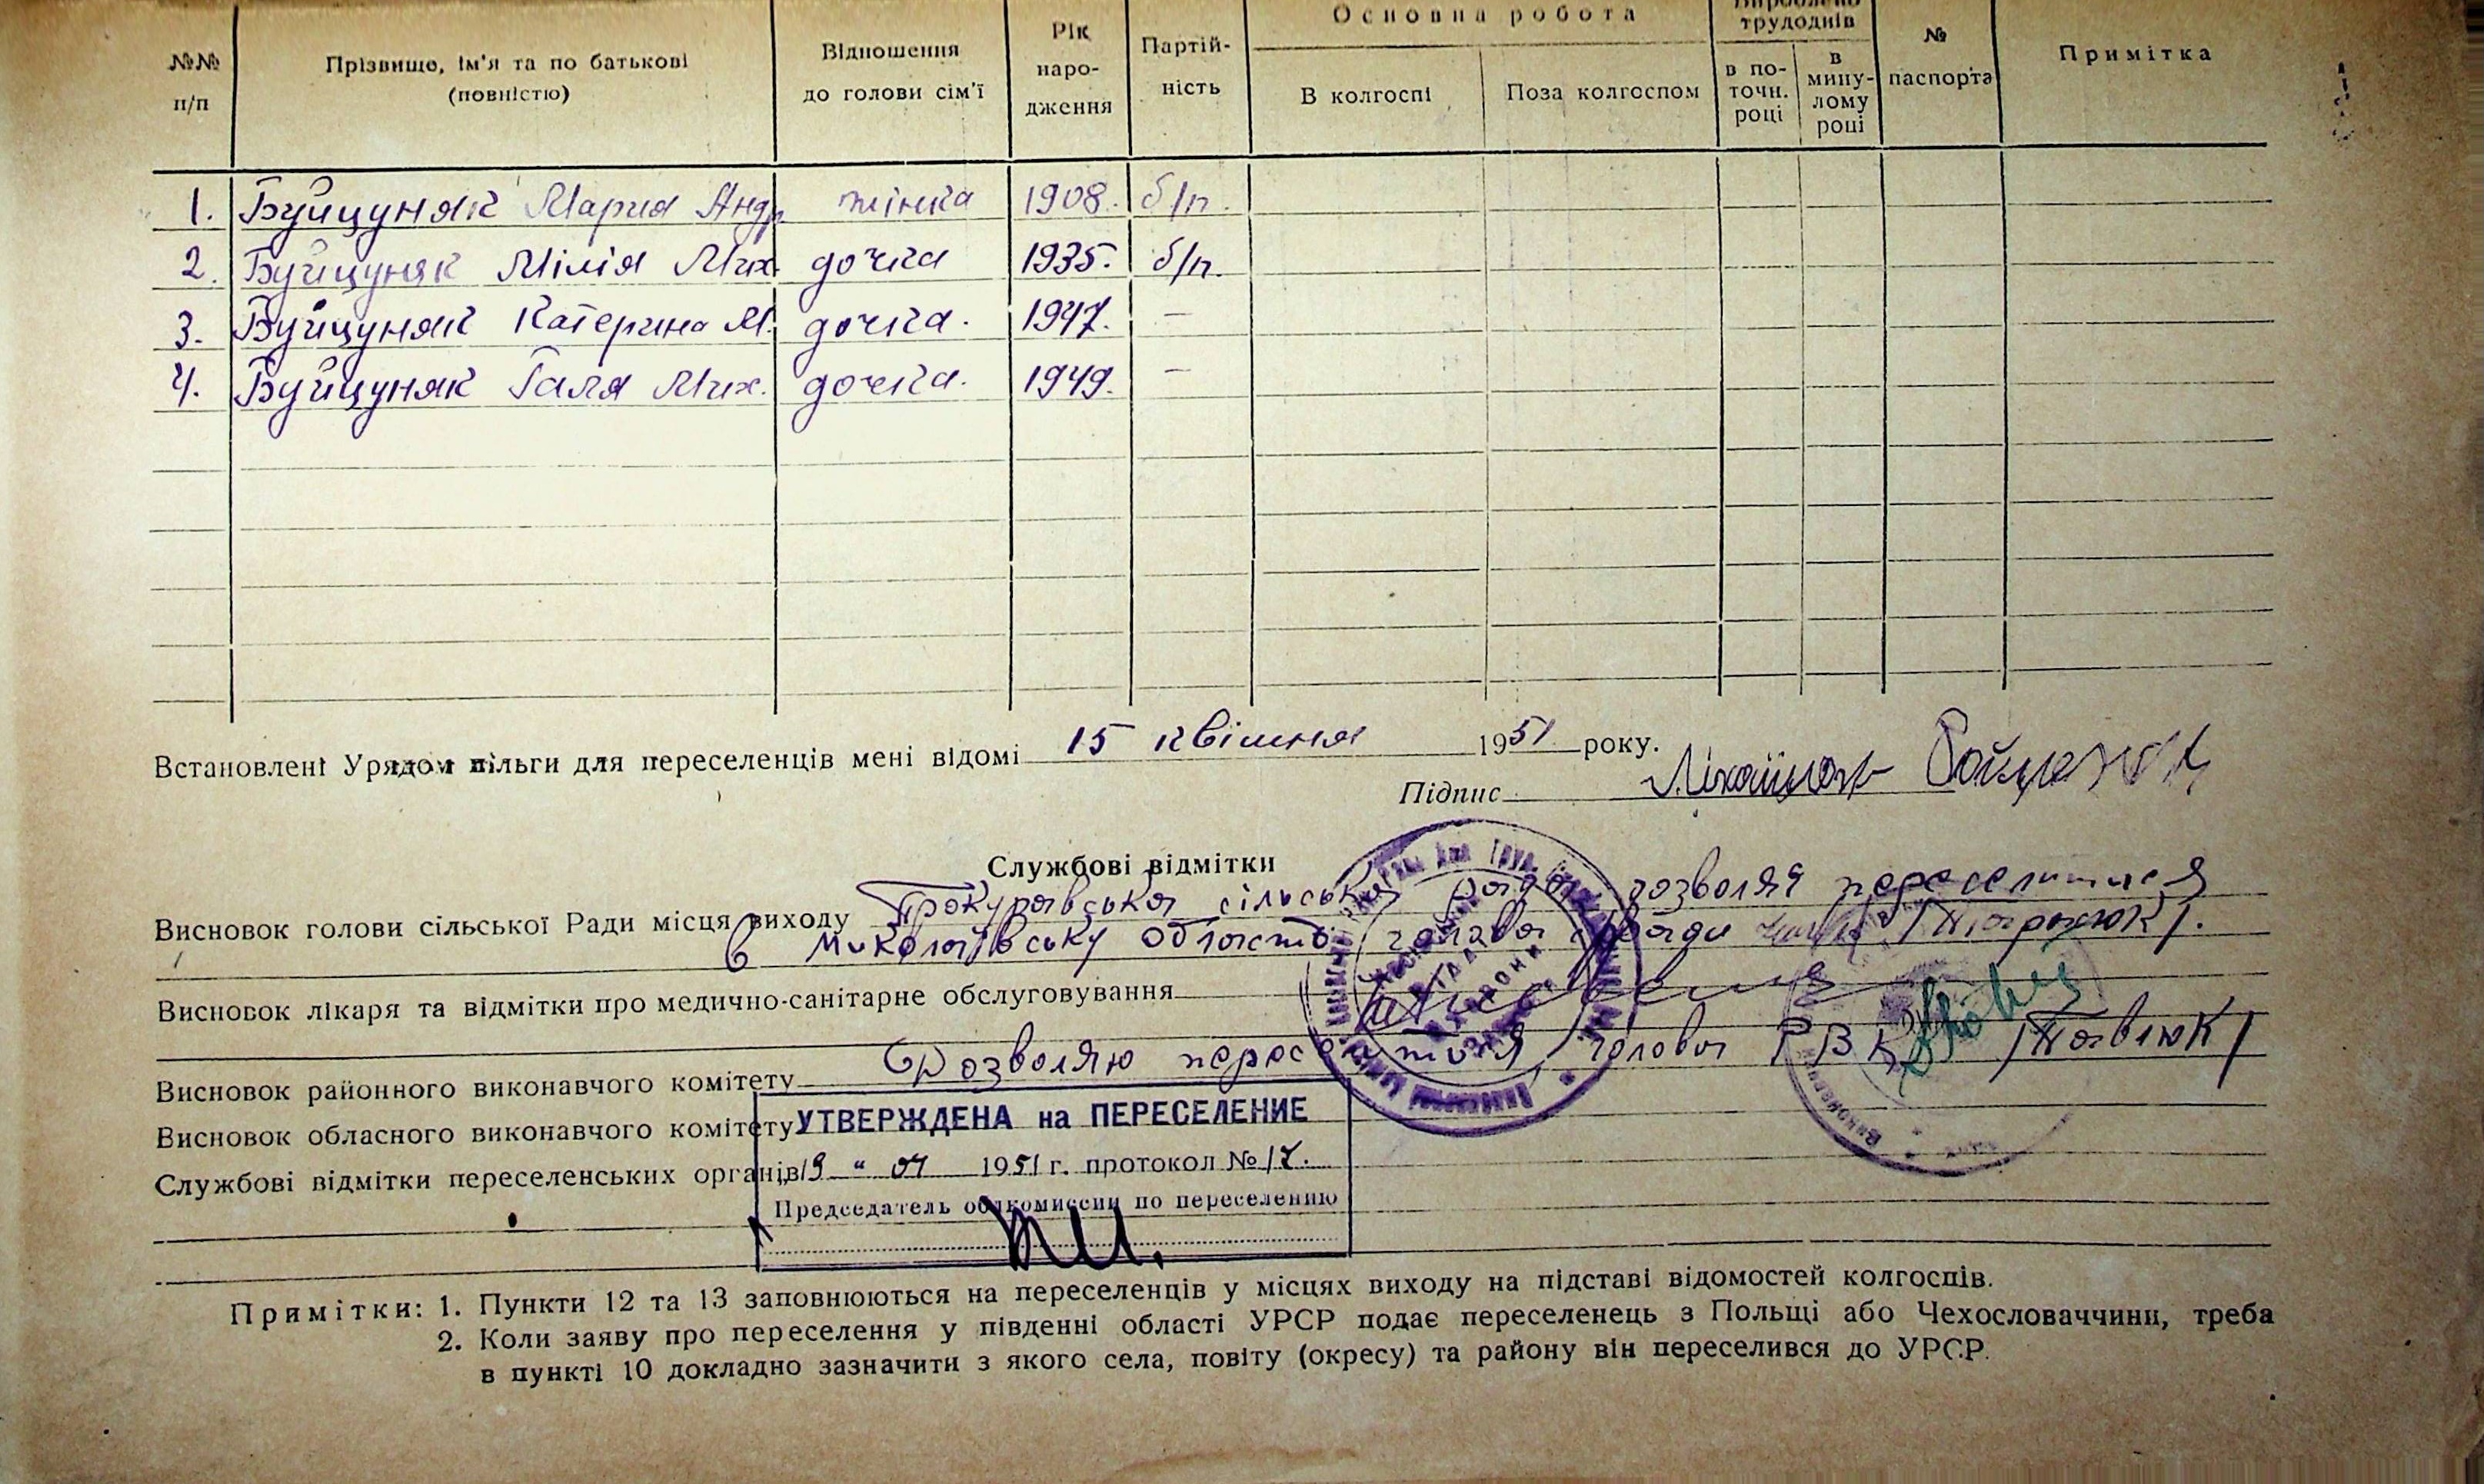 №№ п/п
Прізвище, ім'я та по батькові (повністю)
Відношення до голови сім'ї
Рік народження
Партійність
Основна робота
В колгоспі
Поза колгоспом
трудоднів
в поточн. році
в минулому році
№ паспорта
Примітка
1. Буйцуняк Мария Андр. жінка 1908. б/п.
2. Буйцуняк Мілія Мих. дочка 1935. б/п.
3. Буйцуняк Катерина М. дочка. 1947. —
4. Буйцуняк Галя Мих. дочка. 1949. —
Встановлені Урядом пільги для переселенців мені відомі 15 квітня 1951 року.
Підпис
Службові відмітки
Висновок голови сільської Ради місця виходу Прокуравська сільська рада дозволяя переселитися
в Миколаївську область голова с/ради
Висновок лікаря та відмітки про медично-санітарне обслуговування
Висновок районного виконавчого комітету Дозволяю переселитися, голова РВК /Павлюк/
Висновок обласного виконавчого комітету УТВЕРЖДЕНА на ПЕРЕСЕЛЕНИЕ
Службові відмітки переселенських органів „19" 04 1951 г. протокол № 17.
Председатель облкомиссии по переселению
Примітки: 1. Пункти 12 та 13 заповнюються на переселенців у місцях виходу на підставі відомостей колгоспів.
2. Коли заяву про переселення у південні області УРСР подає переселенець з Польщі або Чехословаччини, треба
в пункті 10 докладно зазначити з якого села, повіту (округу) та району він переселився до УРСР.